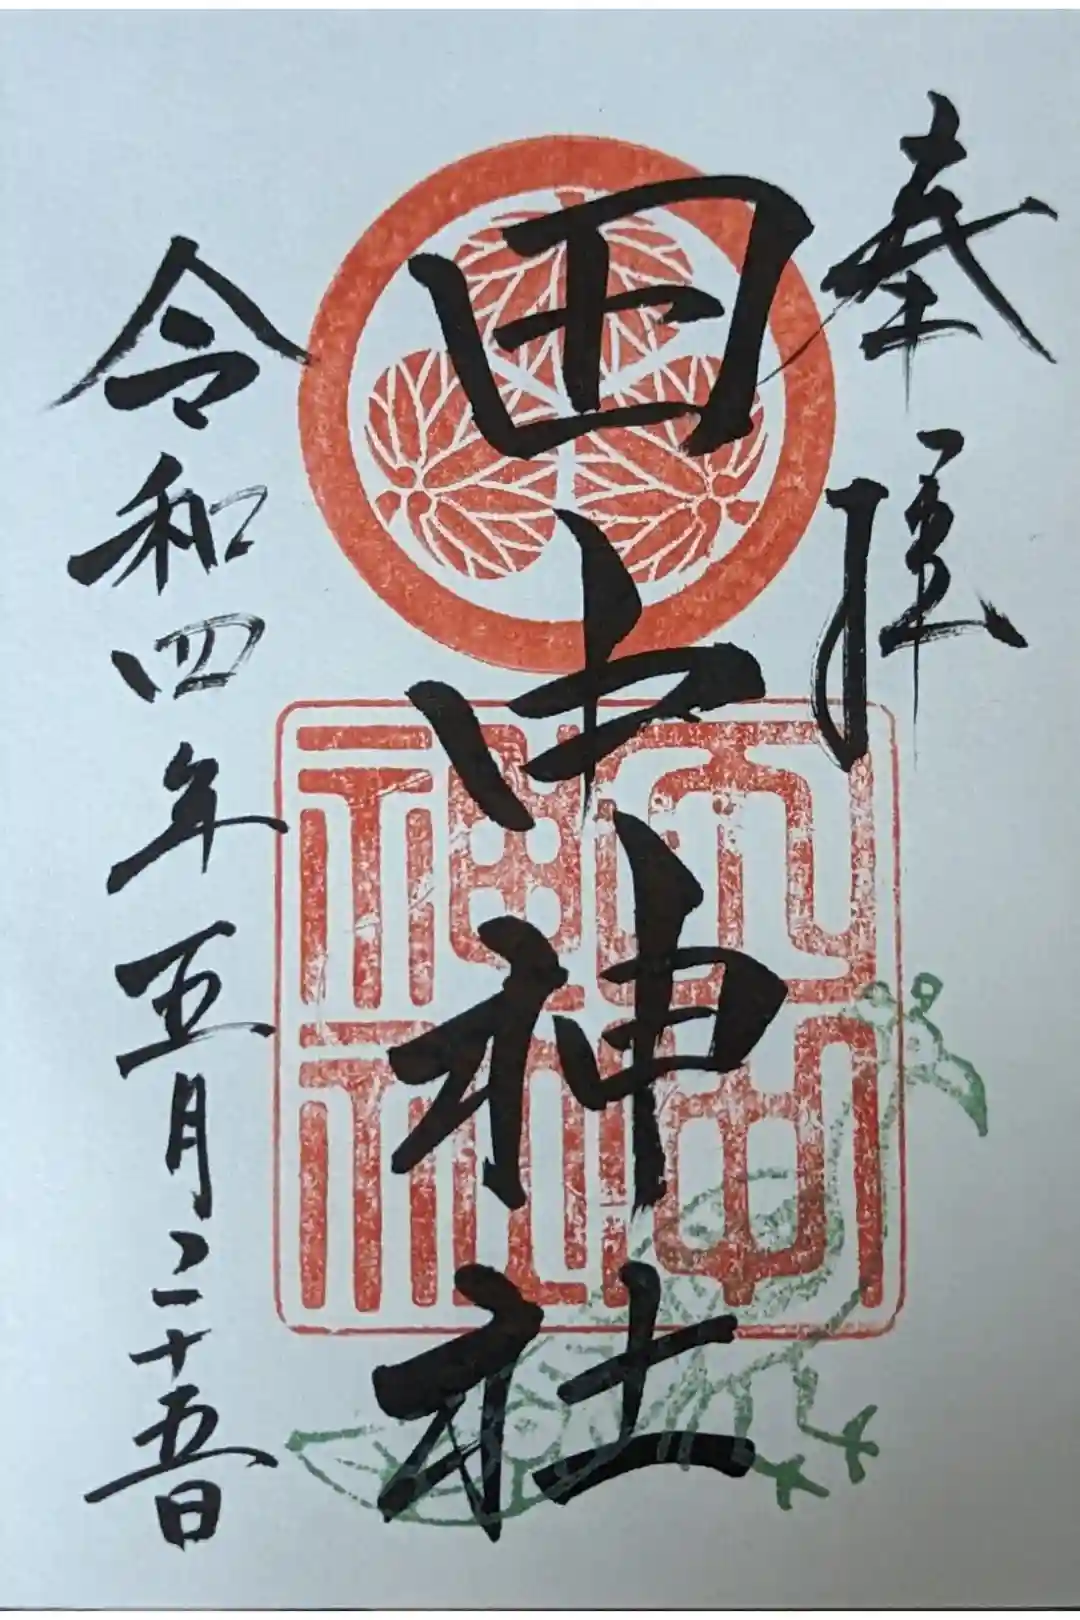 奉拝
田中神社
田中神社
令和四年五月二十五日